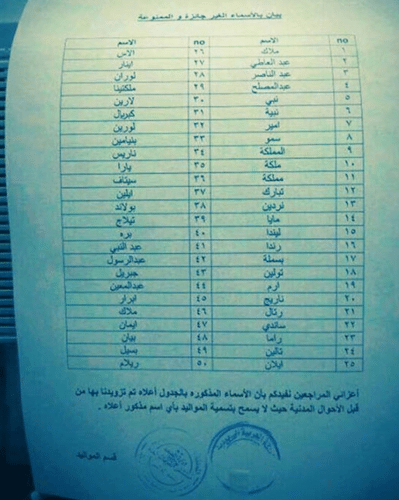 بيان بالأسماء الغير جائزة و الممنوعة
no الاسم no الاسم
١ ملاك ٢٦ الاس
٢ عبد العاطي ٢٧ ايناز
٣ عبد الناصر ٢٨ لوران
٤ عبدالمصلح ٢٩ ملكتينا
٥ نبي ٣٠ لارين
٦ نبية ٣١ كبريال
٧ امير ٣٢ لورين
٨ سمو ٣٣ بنيامين
٩ المملكة ٣٤ ناريس
١٠ ملكة ٣٥ يارا
١١ مملكة ٣٦ سيتاف
١٢ تبارك ٣٧ ايلين
١٣ نردين ٣٨ بولاند
١٤ مايا ٣٩ تيلاج
١٥ ليندا ٤٠ بره
١٦ رندا ٤١ عبد النبي
١٧ بسملة ٤٢ عبدالرسول
١٨ تولين ٤٣ جبريل
١٩ ارم ٤٤ عبدالمعين
٢٠ ناريج ٤٥ ابرار
٢١ رتال ٤٦ ملاك
٢٢ ساندي ٤٧ ايمان
٢٣ راما ٤٨ بيان
٢٤ تالين ٤٩ بسيل
٢٥ ايلان ٥٠ ريلام
أعزائي المراجعين نفيدكم بأن الأسماء المذكوره بالجدول أعلاه تم تزويدنا بها من
قبل الأحوال المدنية حيث لا يسمح بتسمية المواليد بأي اسم مذكور أعلاه .
قسم المواليد